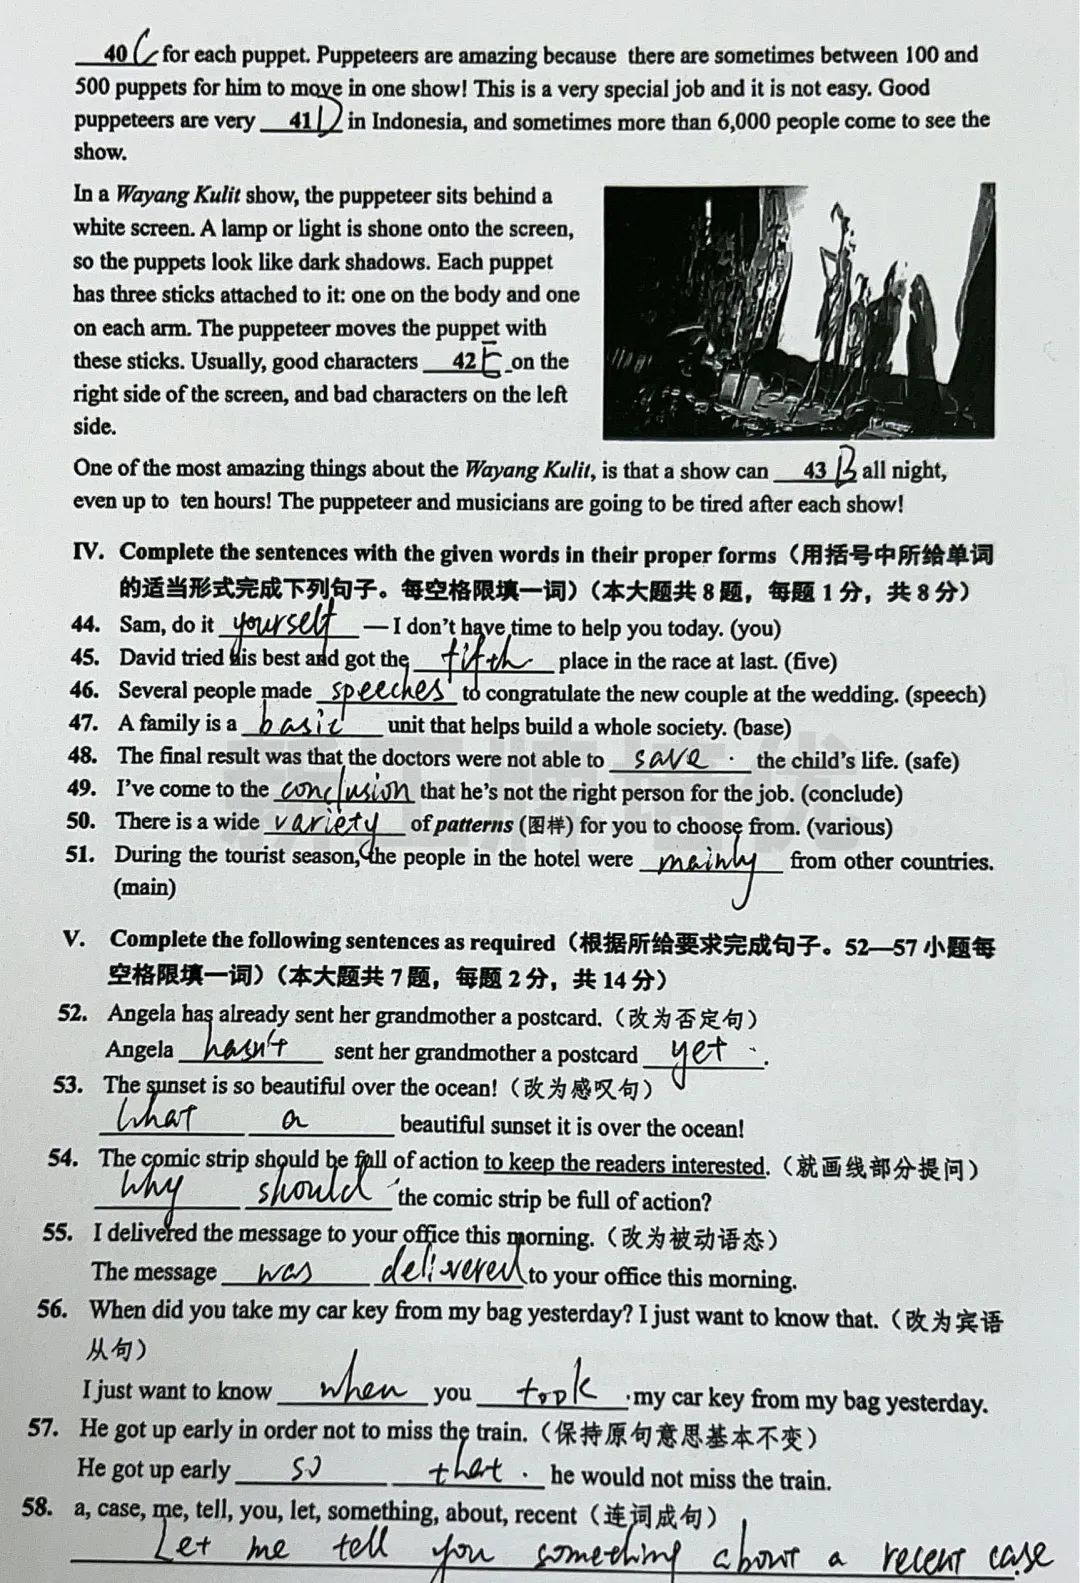 40 C for each puppet. Puppeteers are amazing because there are sometimes between 100 and
500 puppets for him to move in one show! This is a very special job and it is not easy. Good
puppeteers are very 41 D in Indonesia, and sometimes more than 6,000 people come to see the
show.
In a Wayang Kulit show, the puppeteer sits behind a
white screen. A lamp or light is shone onto the screen,
so the puppets look like dark shadows. Each puppet
has three sticks attached to it: one on the body and one
on each arm. The puppeteer moves the puppet with
these sticks. Usually, good characters 42 E on the
right side of the screen, and bad characters on the left
side.
One of the most amazing things about the Wayang Kulit, is that a show can 43 B all night,
even up to ten hours! The puppeteer and musicians are going to be tired after each show!
IV. Complete the sentences with the given words in their proper forms（用括号中所给单词
的适当形式完成下列句子。每空格限填一词）（本大题共 8 题，每题 1 分，共 8 分）
44. Sam, do it yourself — I don't have time to help you today. (you)
45. David tried his best and got the fifth place in the race at last. (five)
46. Several people made speeches to congratulate the new couple at the wedding. (speech)
47. A family is a basic unit that helps build a whole society. (base)
48. The final result was that the doctors were not able to save the child's life. (safe)
49. I've come to the conclusion that he's not the right person for the job. (conclude)
50. There is a wide variety of patterns (图样) for you to choose from. (various)
51. During the tourist season, the people in the hotel were mainly from other countries.
(main)
V. Complete the following sentences as required（根据所给要求完成句子。52—57 小题每
空格限填一词）（本大题共 7 题，每题 2 分，共 14 分）
52. Angela has already sent her grandmother a postcard.（改为否定句）
Angela hasn't sent her grandmother a postcard yet.
53. The sunset is so beautiful over the ocean!（改为感叹句）
What a beautiful sunset it is over the ocean!
54. The comic strip should be full of action to keep the readers interested.（就画线部分提问）
Why should the comic strip be full of action?
55. I delivered the message to your office this morning.（改为被动语态）
The message was delivered to your office this morning.
56. When did you take my car key from my bag yesterday? I just want to know that.（改为宾语
从句）
I just want to know when you took my car key from my bag yesterday.
57. He got up early in order not to miss the train.（保持原句意思基本不变）
He got up early so that he would not miss the train.
58. a, case, me, tell, you, let, something, about, recent（连词成句）
Let me tell you something about a recent case